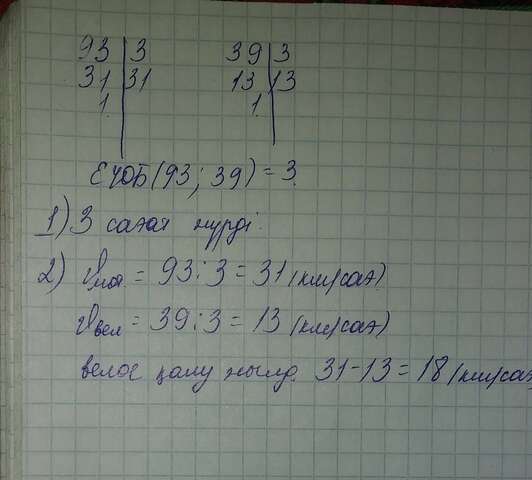 93 | 3 39 | 3
31 | 31 13 | 13
1 | 1 |
ЕҮОБ(93; 39) = 3
1) 3 сағат жүрді.
2) Vмот. = 93 : 3 = 31 (км/сағ)
Vвел = 39 : 3 = 13 (км/сағ)
велос қалу жылд. 31 - 13 = 18 (км/сағ